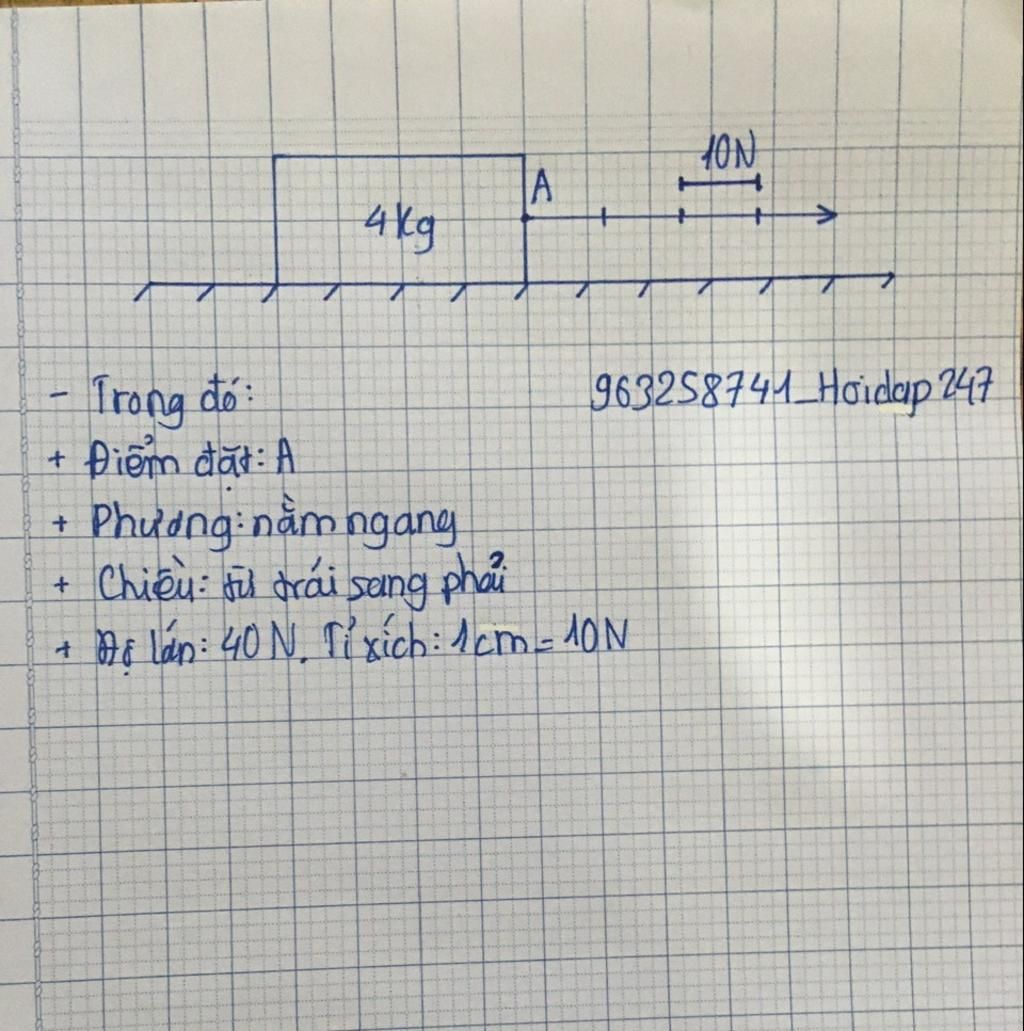 10N
A
4Kg
- Trong đó: 963258741_Hoidap247
+ Điểm đặt: A
+ Phương: nằm ngang
+ Chiều: từ trái sang phải
+ Độ lớn: 40 N. Tỉ xích: 1cm = 10N